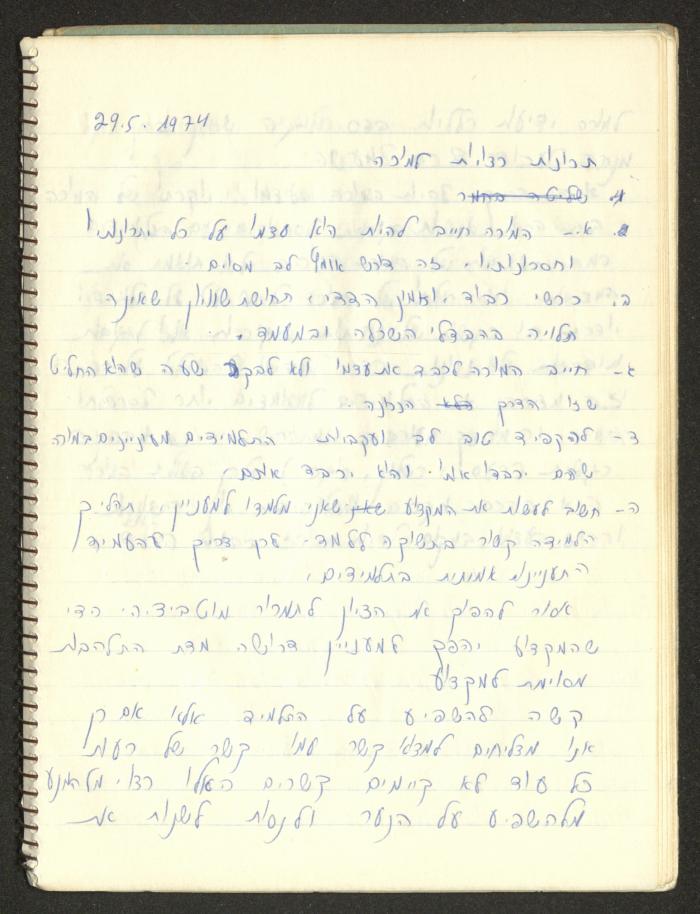 29.5.1974
תכונות רצויות למורה
שליטה בחומר
א. - המורה חייב להיות הוא עצמו על כל יתרונותיו
וחסרונותיו. זה דורש אומץ לב מסוים
ב. רגשי כבוד ואמון הדדי. תחושת שוויון שאינה
תלויה בהבדלי השכלה ובמעמד.
ג- חייב המורה לכבד את עצמו ולא לבקר שעה שהוא החליט
שזו הדרך הנכונה.
ד- להקפיד טוב לב ועקביות. התלמידים מעוניינים במורה
שהם יכבדו אותו. והוא יכבד אותם
ה- חשוב לעשות את המקצוע שאני מלמדו למעניין. תהליך
הלמידה קשור בתשוקה ללמוד. לכן צריך להעמיד
התעניינות אמיתית בתלמידים.
אסור להפוך את הציון לתמריץ מוטיבציה. כדי
שהמקצוע יהפך למעניין דרושה מידת התלהבות
מסוימת למקצוע
קשה להשפיע על התלמיד אלא אם כן
אנו מצליחים למצוא קשר למו קשר של רעות
כל עוד לא קיימים קשרים האלו רצוי להמנע
מלהשפיע על הנוער ולנסות לשנות את